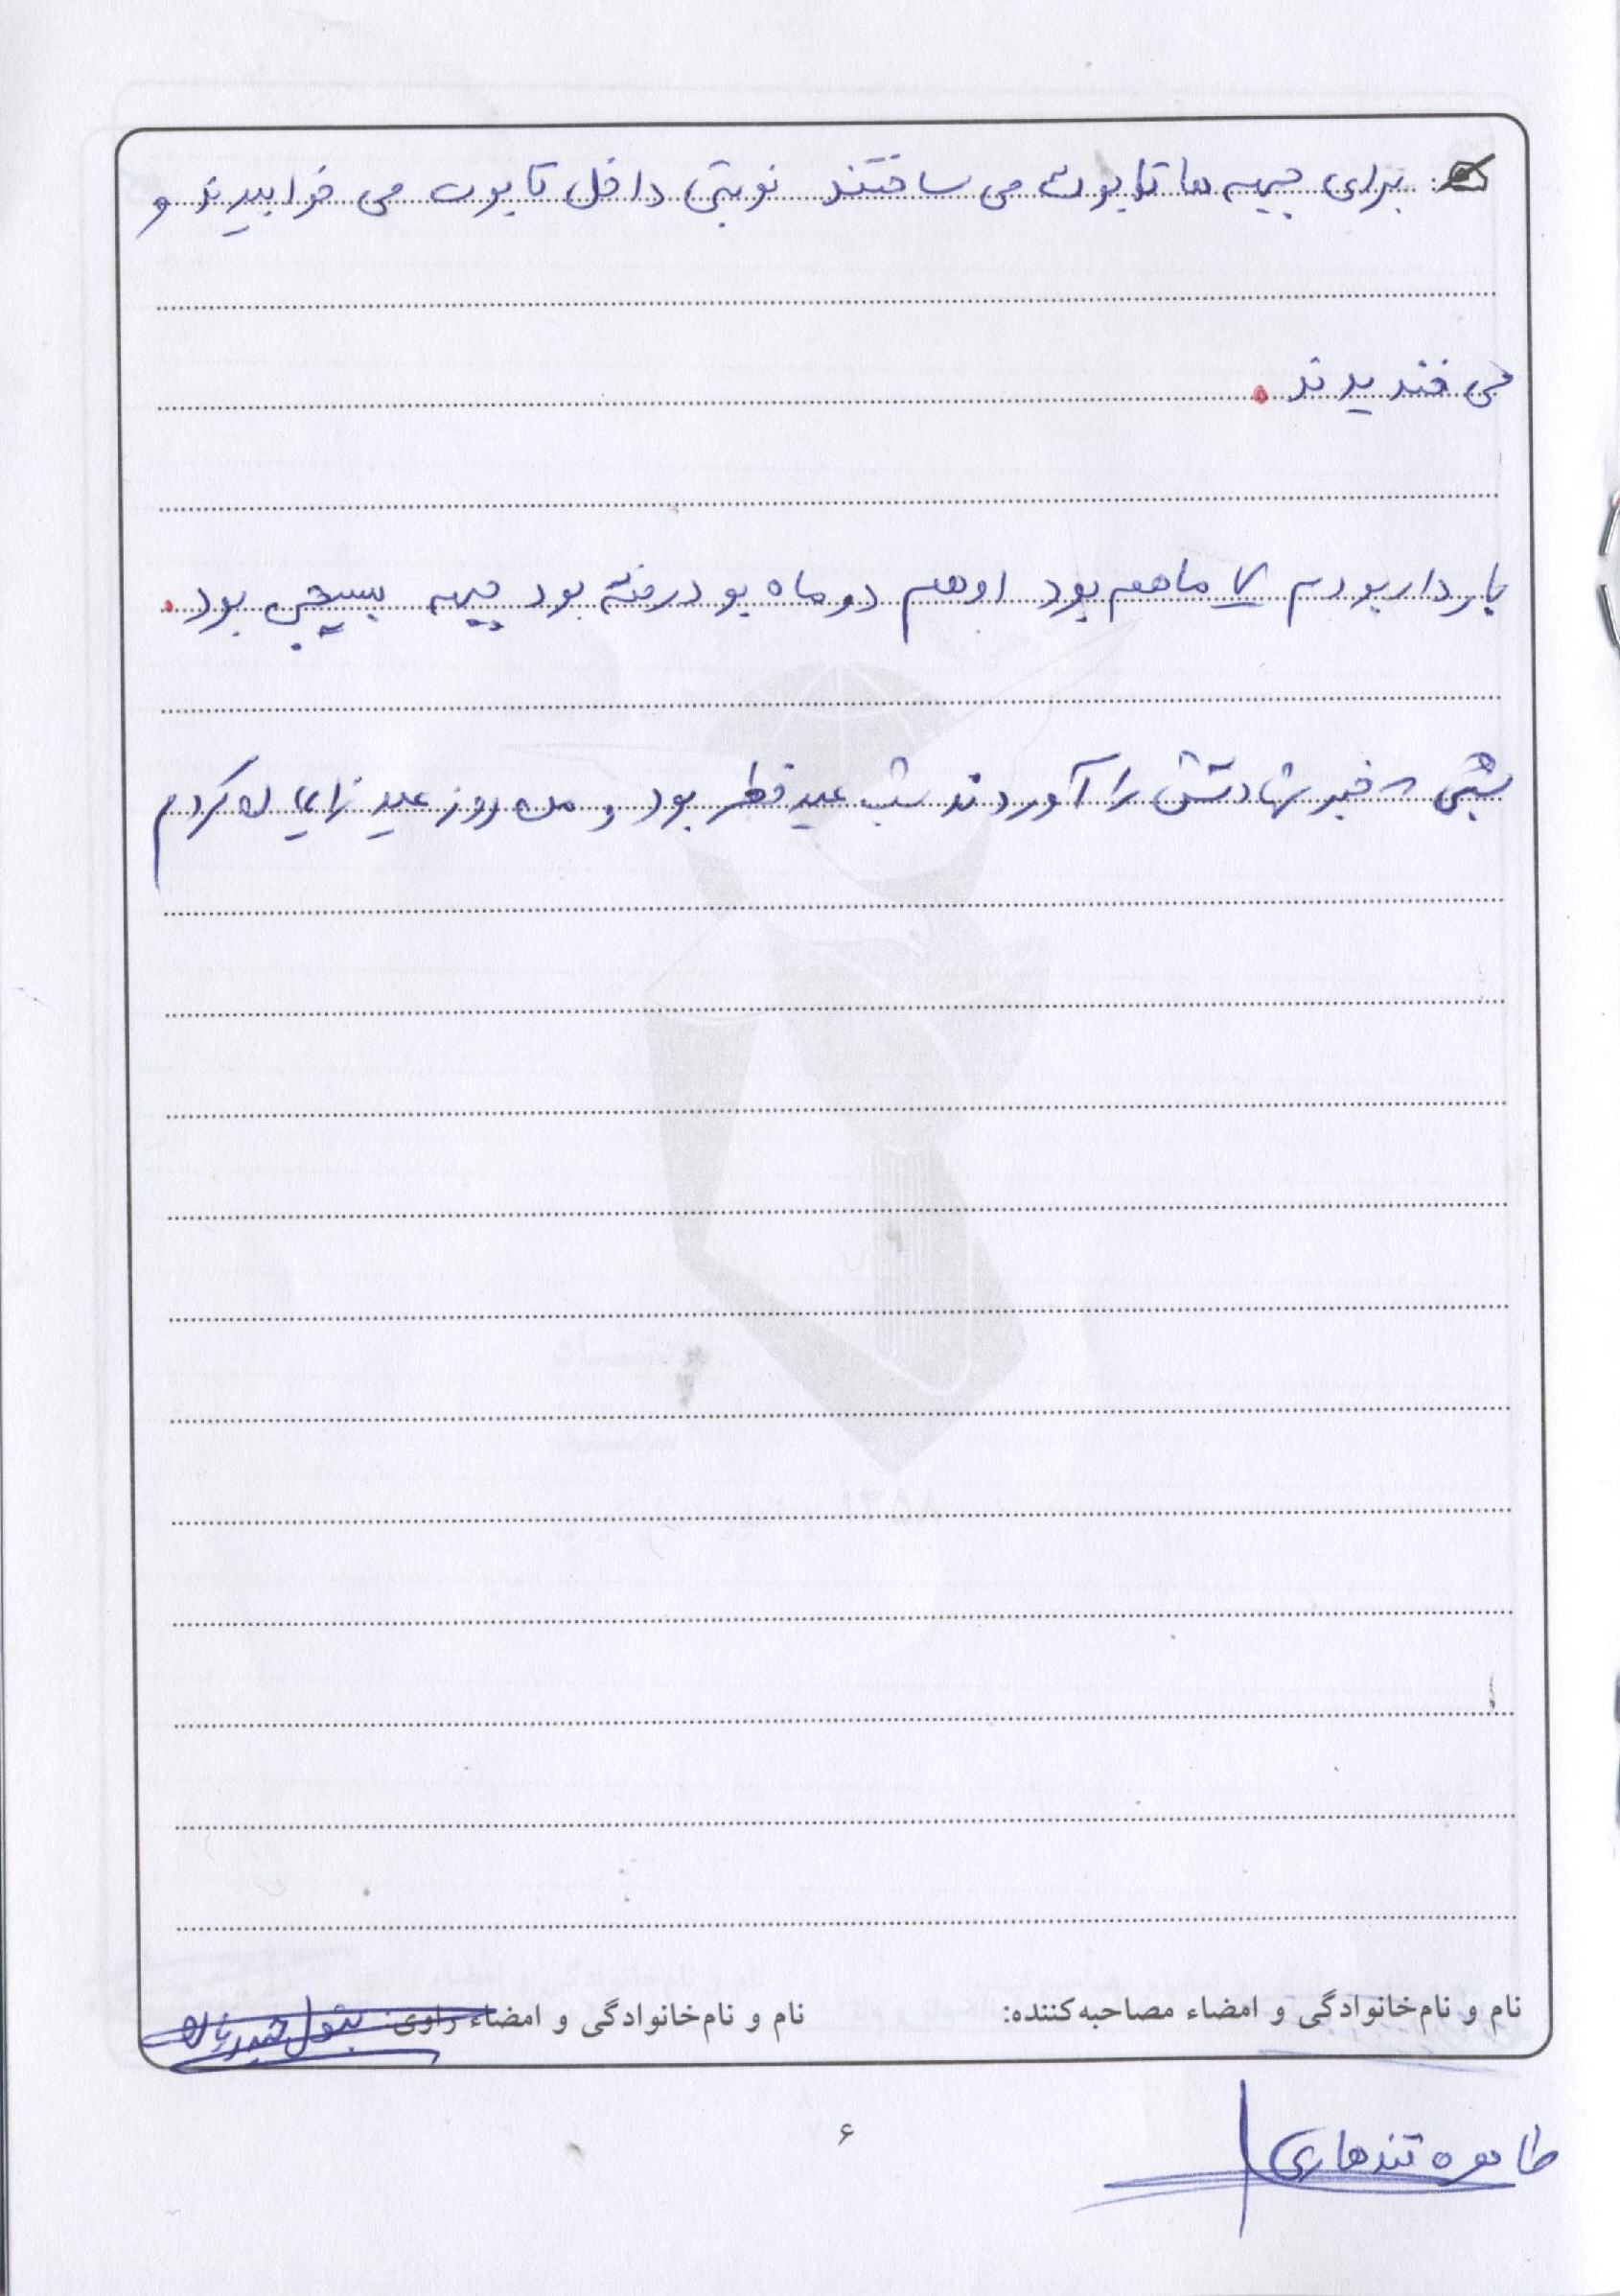 برای جبهه ها تابوت می ساختند نوبتی داخل تابوت می خوابیدند و
می خندیدند.
باردار بودم ۷ ماهم بود او هم دو ماه بود رفته بود جبهه بسیجی بود.
شبی که خبر شهادتش را آوردند شب عید فطر بود و من روز عید زایمان کردم
نام و نام‌خانوادگی و امضاء مصاحبه‌کننده:
نام و نام‌خانوادگی و امضاء راوی: بتول
طاهره قندهاری
۶